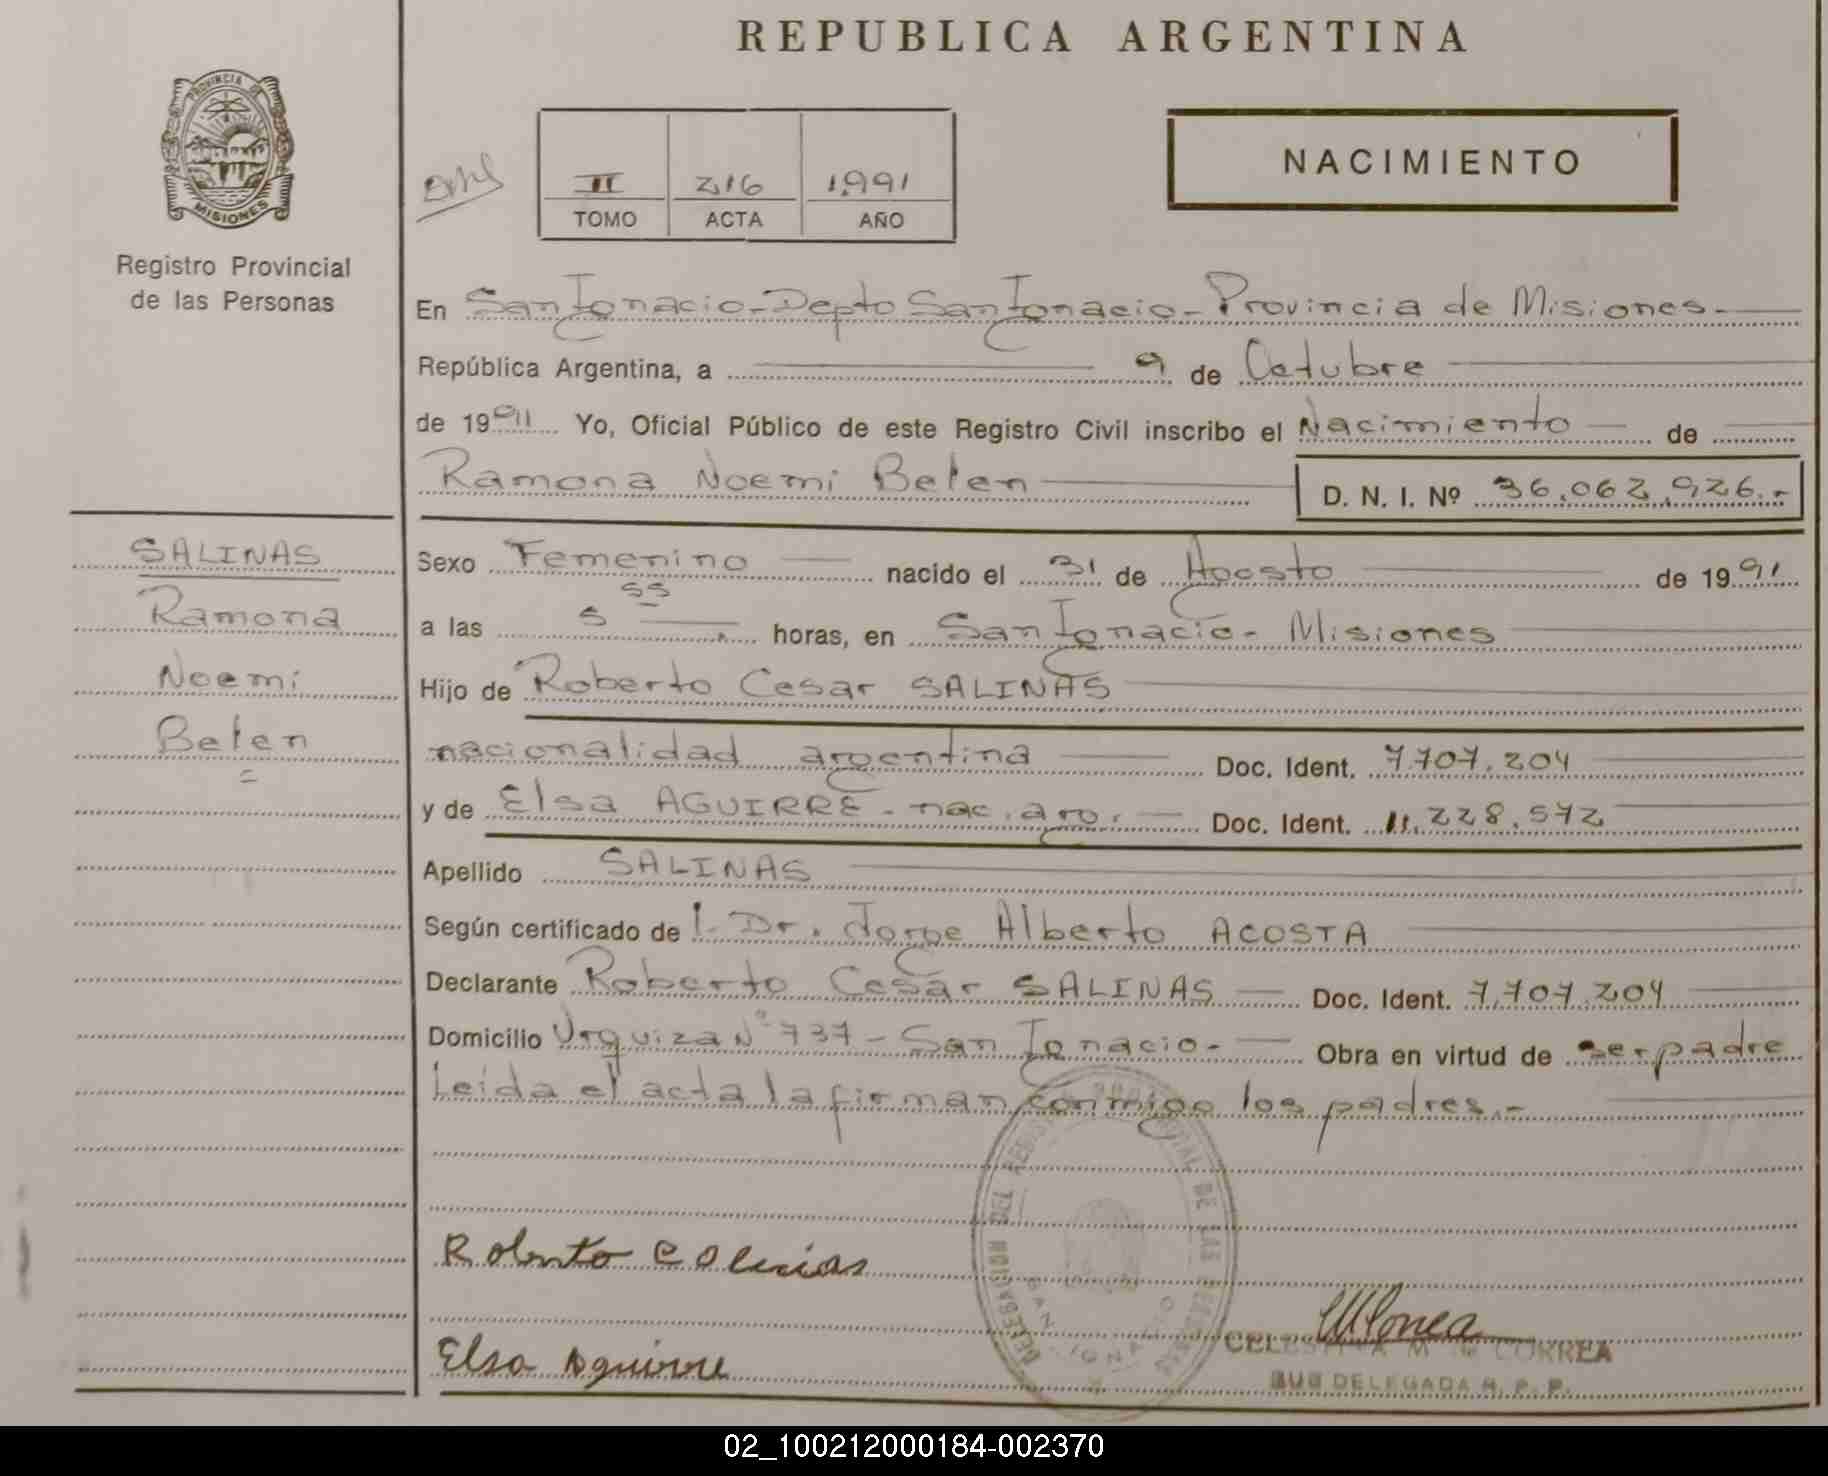 REPUBLICA ARGENTINA
PROVINCIA DE
MISIONES
Registro Provincial
de las Personas
II 216 1991
TOMO ACTA AÑO
NACIMIENTO
En San Ignacio - Depto San Ignacio - Provincia de Misiones.-
República Argentina, a 9 de Octubre
de 1991 Yo, Oficial Público de este Registro Civil inscribo el Nacimiento de
Ramona Noemi Belen D. N. I. Nº 36.062.926.-
SALINAS
Ramona
Noemi
Belen
=
Sexo Femenino nacido el 31 de Agosto de 1991
a las 5 55 horas, en San Ignacio - Misiones
Hijo de Roberto Cesar SALINAS
nacionalidad argentina Doc. Ident. 7.707.204
y de Elsa AGUIRRE - nac. arg. Doc. Ident. 11.228.572
Apellido SALINAS
Según certificado de l. Dr. Jorge Alberto ACOSTA
Declarante Roberto Cesar SALINAS Doc. Ident. 7.707.204
Domicilio Urquiza Nº 737 - San Ignacio.- Obra en virtud de ser padre
Leida el acta la firman conmigo los padres.-
DELEGACION DEL REGISTRO PROVINCIAL DE LAS PERSONAS
SAN IGNACIO
Roberto C Salinas
Elsa Aguirre
CORREA
SUB DELEGADA R. P. P.
02_100212000184-002370